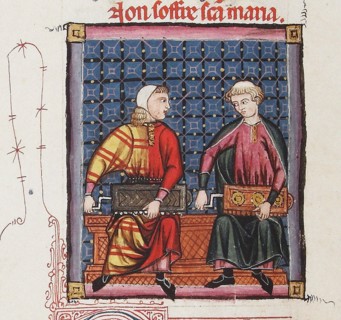 non soffre sca maria.